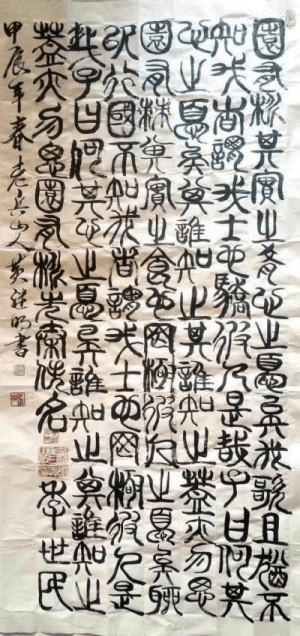 園有桃其實之肴心之憂矣我歌且謠不
知我者謂我士也驕彼人是哉子曰何其
心之憂矣其誰知之其誰知之蓋亦勿思
園有棘其實之食之憂矣聊
以行國不知我者謂我士也罔極彼人是
哉子曰何其心之憂矣其誰知之其誰知之
蓋亦勿思園有桃先秦佚名
甲辰年春老兵山人黃書